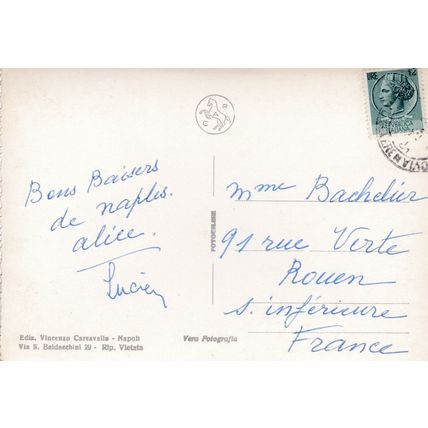 C R
LIRE 12
Bons Baisers
de naples.
alice.
Lucien
FOTOCELERE
mme Bachelier
91 rue Verte
Rouen
S. inférieure
France
Ediz. Vincenzo Carcavallo - Napoli
Via S. Baldacchini 29 - Rip. Vietata
Vera Fotografia